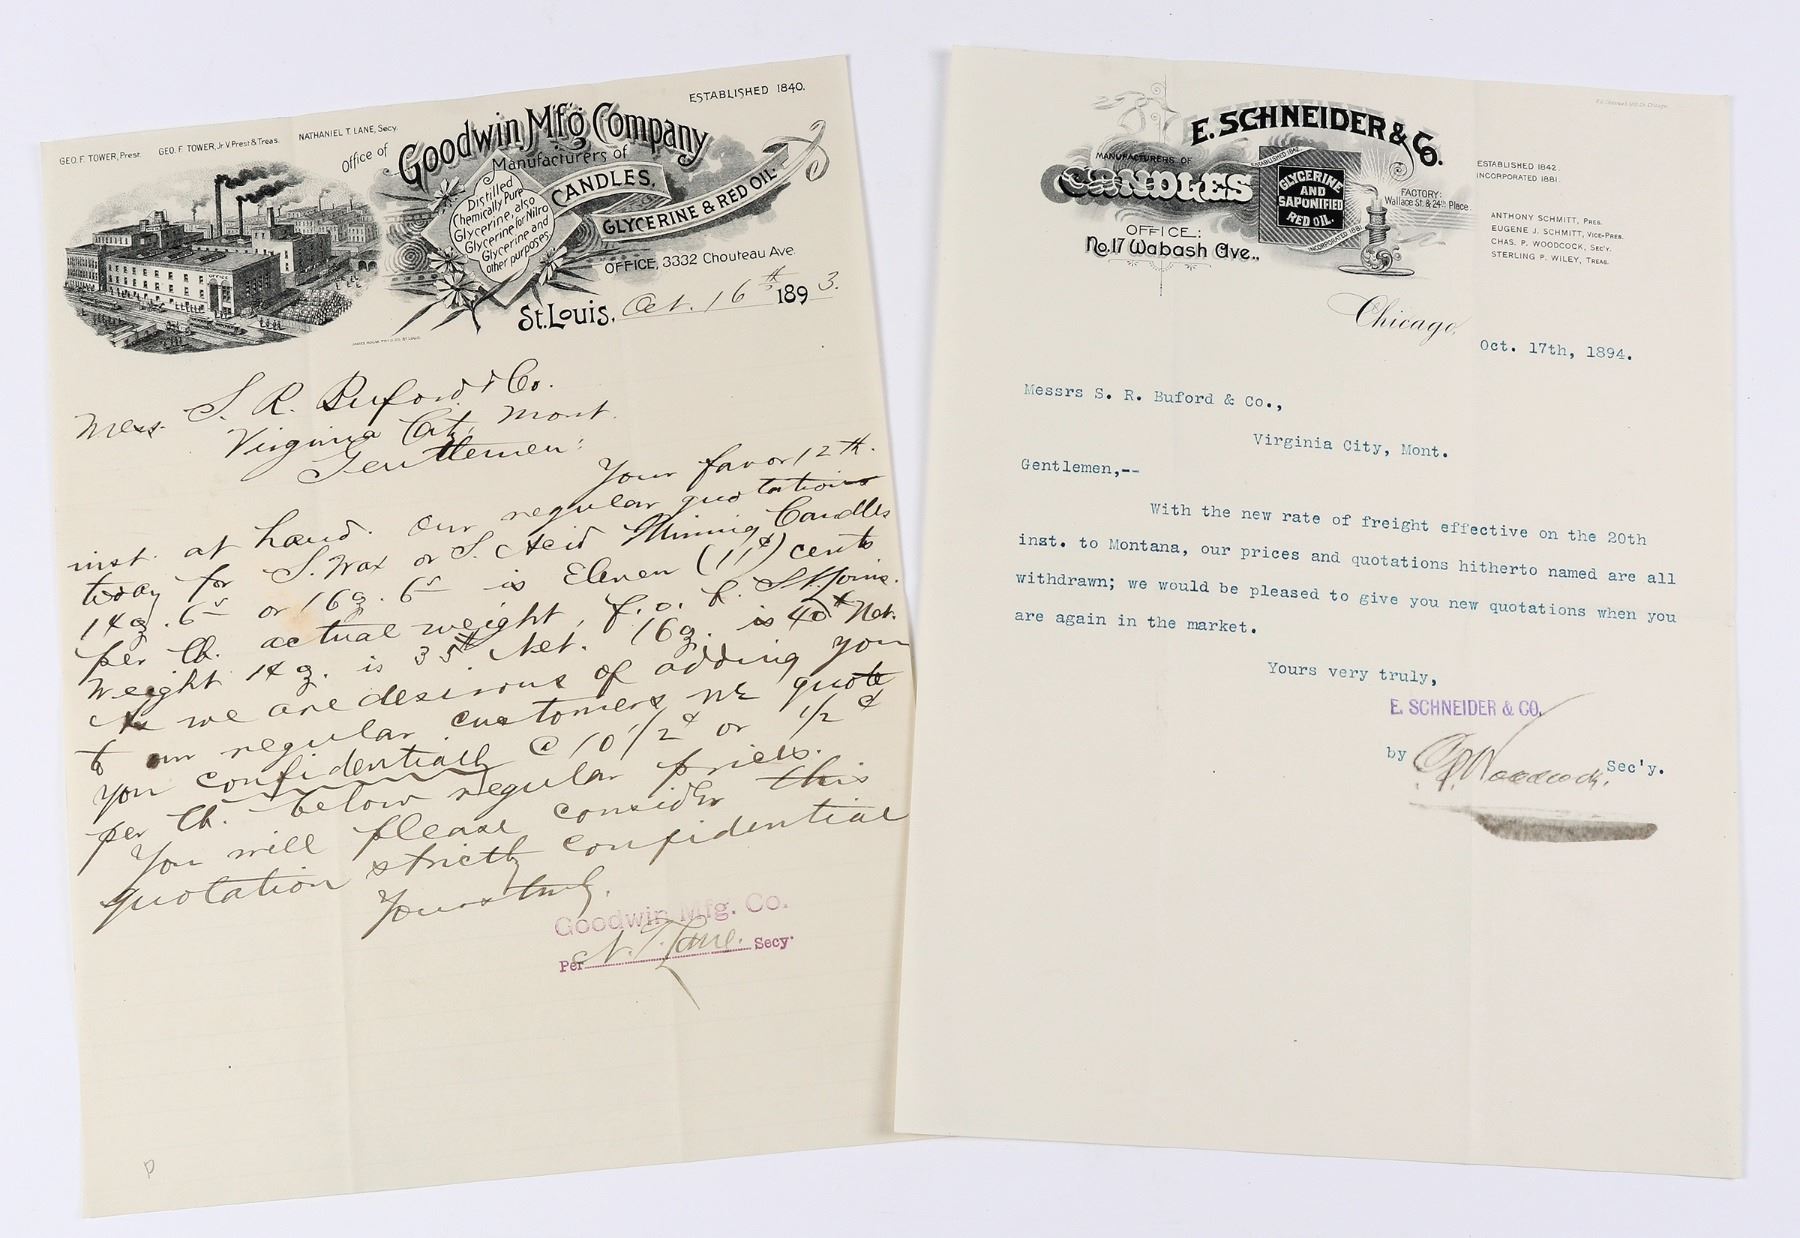 GEO. F. TOWER, Prest.
GEO. F. TOWER, Jr. V. Prest & Treas.
NATHANIEL T. LANE, Secy.
ESTABLISHED 1840.
Office of
Goodwin M'f'g Company
Manufacturers of
CANDLES,
GLYCERINE & RED OIL.
Distilled
Chemically Pure
Glycerine, also
Glycerine for Nitro
Glycerine and
other purposes.
OFFICE, 3332 Chouteau Ave.
St. Louis, Oct. 16th 1893.
Mess. S. R. Buford & Co.
Virginia City, Mont.
Gentlemen:
Your favor 12th.
inst. at hand. Our regular quotations
today for S. Wax or S. Acid Mining Candles
14oz. 6s or 16oz. 6s is Eleven (11¢) cents
per lb. actual weight, f. o. b. St. Louis.
Weight 14oz. is 35# Net. 16oz. is 40# Net.
As we are desirous of adding you
to our regular customers we quote
you confidentially @ 10 1/2¢ or 1/2¢
per lb. below regular prices.
You will please consider this
quotation strictly confidential
Yours truly.
Goodwin Mfg. Co.
Per N. T. Lane. Secy.
P
E. SCHNEIDER & Co.
MANUFACTURERS OF
CANDLES
ESTABLISHED 1842.
GLYCERINE
AND
SAPONIFIED
RED OIL.
INCORPORATED 1881.
FACTORY:
Wallace St. & 24th Place.
OFFICE:
No. 17 Wabash Ave.,
ESTABLISHED 1842.
INCORPORATED 1881.
ANTHONY SCHMITT, Pres.
EUGENE J. SCHMITT, Vice-Pres.
CHAS. P. WOODCOCK, Sec'y.
STERLING P. WILEY, Treas.
Chicago,
Oct. 17th, 1894.
Messrs S. R. Buford & Co.,
Virginia City, Mont.
Gentlemen,--
With the new rate of freight effective on the 20th
inst. to Montana, our prices and quotations hitherto named are all
withdrawn; we would be pleased to give you new quotations when you
are again in the market.
Yours very truly,
E. SCHNEIDER & CO.
by C. P. Woodcock, Sec'y.